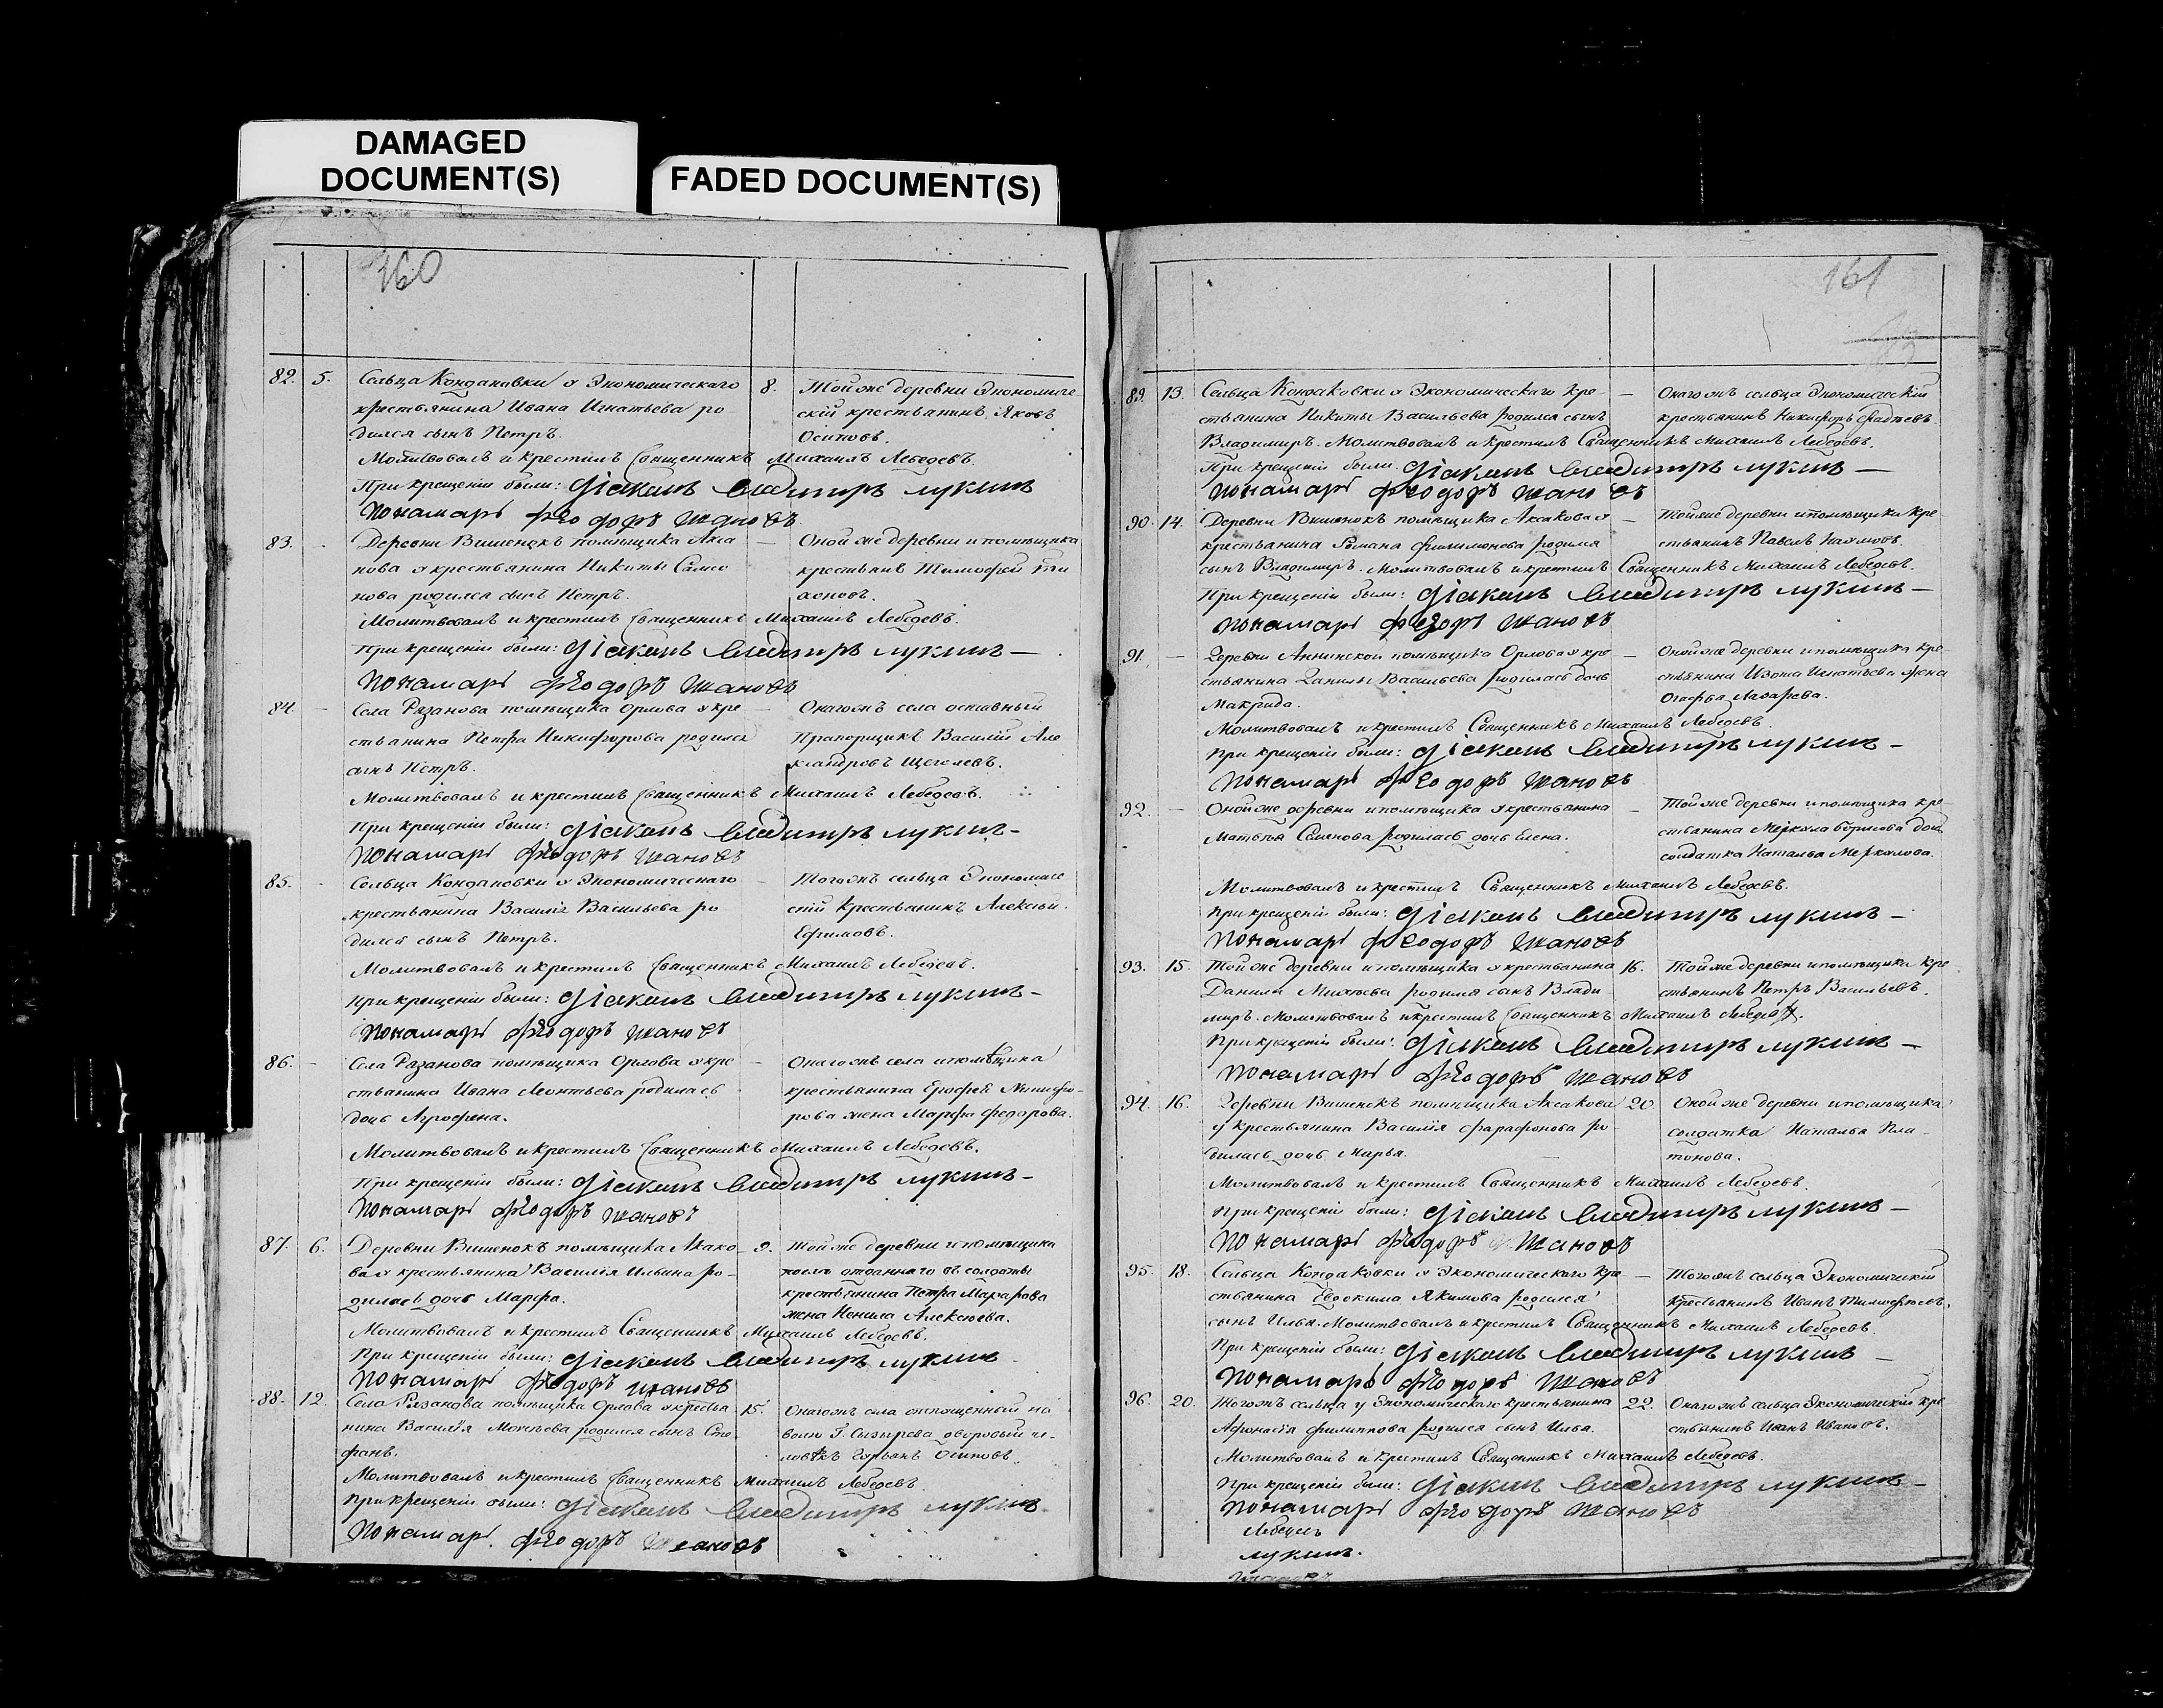 DAMAGED
DOCUMENT(S)
FADED DOCUMENT(S)
160
82. 5. Сельца Кондаковки у Экономическаго
крестьянина Ивана Игнатьева ро
дился сынъ Петръ.
8. Тойже деревни Экономиче
скій крестьянинъ Яковъ
Осиповъ.
Молитвовалъ и крестилъ Священникъ Михаилъ Лебедевъ.
При крещеніи были: Діаконъ Владимиръ Лукинъ
Пономарь Феодоръ Ивановъ
83. - Деревни Вишенокъ помѣщика Акса
кова у крестьянина Никиты Самсо
нова родился сынъ Петръ.
— Оной же деревни и помѣщика
крестьянъ Тимофей Ти
хоновъ.
Молитвовалъ и крестилъ Священникъ Михаилъ Лебедевъ.
При крещеніи были: Діаконъ Владимиръ Лукинъ —
Пономарь Феодоръ Ивановъ
84. - Села Рязанова помѣщика Орлова у кре
стьянина Петра Никифорова родился
сынъ Петръ.
— Онагожъ села
Прапорщикъ Василій Але
ксандровъ Щеголевъ.
Молитвовалъ и крестилъ Священникъ Михаилъ Лебедевъ.
При крещеніи были: Діаконъ Владимиръ Лукинъ —
Пономарь Феодоръ Ивановъ
85. - Сельца Кондаковки у Экономическаго
крестьянина Василія Васильева ро
дился сынъ Петръ.
— Тогожъ сельца Экономиче
скій крестьянинъ Алексѣй
Ефимовъ.
Молитвовалъ и крестилъ Священникъ Михаилъ Лебедевъ.
При крещеніи были: Діаконъ Владимиръ Лукинъ —
Пономарь Феодоръ Ивановъ
86. - Села Рязанова помѣщика Орлова у кре
стьянина Ивана Леонтьева родилась
дочь Агрофена.
— Онагожъ села и помѣщика
крестьянина Ерофея Никифо-
рова жена Марфа Федорова.
Молитвовалъ и крестилъ Священникъ Михаилъ Лебедевъ.
При крещеніи были: Діаконъ Владимиръ Лукинъ —
Пономарь Феодоръ Ивановъ
87. 6. Деревни Вишенокъ помѣщика Аксако-
ва у крестьянина Василія Ильина ро-
дилась дочь Марфа.
9. Тойже деревни и помѣщика
отданнаго въ солдаты
крестьянина Петра Макарова
жена Ненила Алексѣева.
Молитвовалъ и крестилъ Священникъ Михаилъ Лебедевъ.
При крещеніи были: Діаконъ Владимиръ Лукинъ
Пономарь Феодоръ Ивановъ
88. 12. Села Рязанова помѣщика Орлова у крестья
нина Василія Мокѣева родился сынъ Сте
фанъ.
15. Онагожъ села отпущенный на
волю Г. дворовый че-
ловѣкъ Осиповъ.
Молитвовалъ и крестилъ Священникъ Михаилъ Лебедевъ
При крещеніи были: Діаконъ Владимиръ Лукинъ
Пономарь Феодоръ Ивановъ
161
89. 13. Сельца Кондаковки у Экономическаго кре
стьянина Никиты Васильева родился сынъ
— Онагожъ сельца Экономическій
крестьянинъ Никифоръ Фадѣевъ.
Владимиръ. Молитвовалъ и крестилъ Священникъ Михаилъ Лебедевъ.
При крещеніи были. Діаконъ Владимиръ Лукинъ —
Пономарь Феодоръ Ивановъ
90. 14. Деревни Вишенокъ помѣщика Аксакова у
крестьянина Романа Филимонова родился
— Тойже деревни и помѣщика кре
стьянинъ Павелъ Наумовъ.
сынъ Владимиръ. Молитвовалъ и крестилъ Священникъ Михаилъ Лебедевъ.
При крещеніи были: Діаконъ Владимиръ Лукинъ —
Пономарь Феодоръ Ивановъ
91. — Деревни Аннинской помѣщика Орлова у кре
стьянина Данилы Васильева родилась дочь
Макрида.
— Онойже деревни и помѣщика кре
стьянина Изота Игнатьева жена
Агафья Лазарева.
Молитвовалъ и крестилъ Священникъ Михаилъ Лебедевъ.
При крещеніи были: Діаконъ Владимиръ Лукинъ —
Пономарь Феодоръ Ивановъ
92. — Онойже деревни и помѣщика у крестьянина
Матвѣя Семенова родилась дочь Елена.
— Тойже деревни и помѣщика кре
стьянина Меркула Борисова дочь
солдатка Наталья Меркулова.
Молитвовалъ и крестилъ Священникъ Михаилъ Лебедевъ.
При крещеніи были: Діаконъ Владимиръ Лукинъ —
Пономарь Феодоръ Ивановъ
93. 15. Тойже деревни и помѣщика у крестьянина
Данилы Михѣева родился сынъ Влади
16. Тойже деревни и помѣщика кре
стьянинъ Петръ Васильевъ.
миръ. Молитвовалъ и крестилъ Священникъ Михаилъ Лебедевъ.
При крыщеніи были: Діаконъ Владимиръ Лукинъ —
Пономарь Феодоръ Ивановъ
94. 16. Деревни Вишенокъ помѣщика Аксакова
у крестьянина Василія Фарафонова ро
дилась дочь Марья.
20. Онойже деревни и помѣщика
солдатка Наталья Пла-
тонова.
Молитвовалъ и крестилъ Священникъ Михаилъ Лебедевъ.
При крещеніи были: Діаконъ Владимиръ Лукинъ —
Пономарь Феодоръ Ивановъ
95. 18. Сельца Кондаковки у Экономическаго кре
стьянина Евдокима Якимова родился
— Тогожъ сельца Экономическій
крестьянинъ Иванъ Тимофѣевъ.
сынъ Илья. Молитвовалъ и крестилъ Священникъ Михаилъ Лебедевъ.
При крещеніи были: Діаконъ Владимиръ Лукинъ —
Пономарь Феодоръ Ивановъ
96. 20. Тогожъ сельца у Экономическаго крестьянина
Афонасія Филиппова родился сынъ Илья.
22. Онагожъ сельца Экономическій кре
стьянинъ Иванъ Ивановъ.
Молитвовалъ и крестилъ Священникъ Михаилъ Лебедевъ.
При крещеніи были: Діаконъ Владимиръ Лукинъ —
Пономарь Феодоръ Ивановъ
Лебедевъ
Лукинъ.